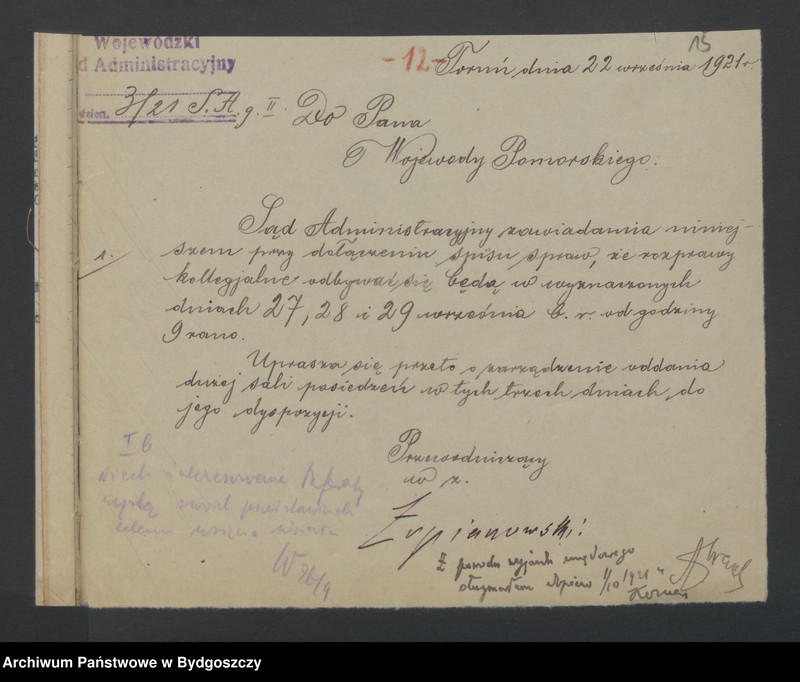 15
Wojewódzki
d Administracyjny
-12- Toruń, dnia 22 września 1921 r.
dzien. 3/21 S.A.g. II.
Do Pana
Wojewody Pomorskiego.
Sąd Administracyjny zawiadamia niniej-
1. szem przy dołączeniu spisu spraw, że rozprawy
kollegjalne odbywać się będą w wyznaczonych
dniach 27, 28 i 29 września b. r. od godziny
9 rano.
Uprasza się przeto o zarządzenie oddania
dużej sali posiedzeń w tych trzech dniach do
jego dyspozycji.
Przewodniczący
w z.
I b
niech
celem
W 26/9
Z powodu wyjazdu urzędowego
otrzymałem dopiero 1/10 1921 r.
Archiwum Państwowe w Bydgoszczy